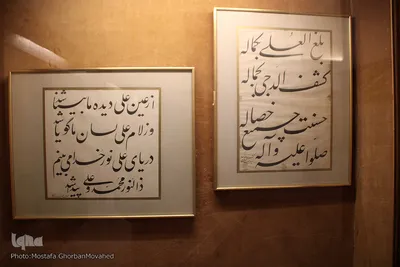 بلغ العلی بکماله
کشف الدجی بجماله
حسنت جمیع خصاله
صلوا علیه وآله
از عین علی دیده ما بینا شد
وز لام علی لسان ما گویا شد
دریای علی نور خدا می بینم
ذالنور محمد و علی پیدا شد
iqna
Photo:Mostafa GhorbanMovahed